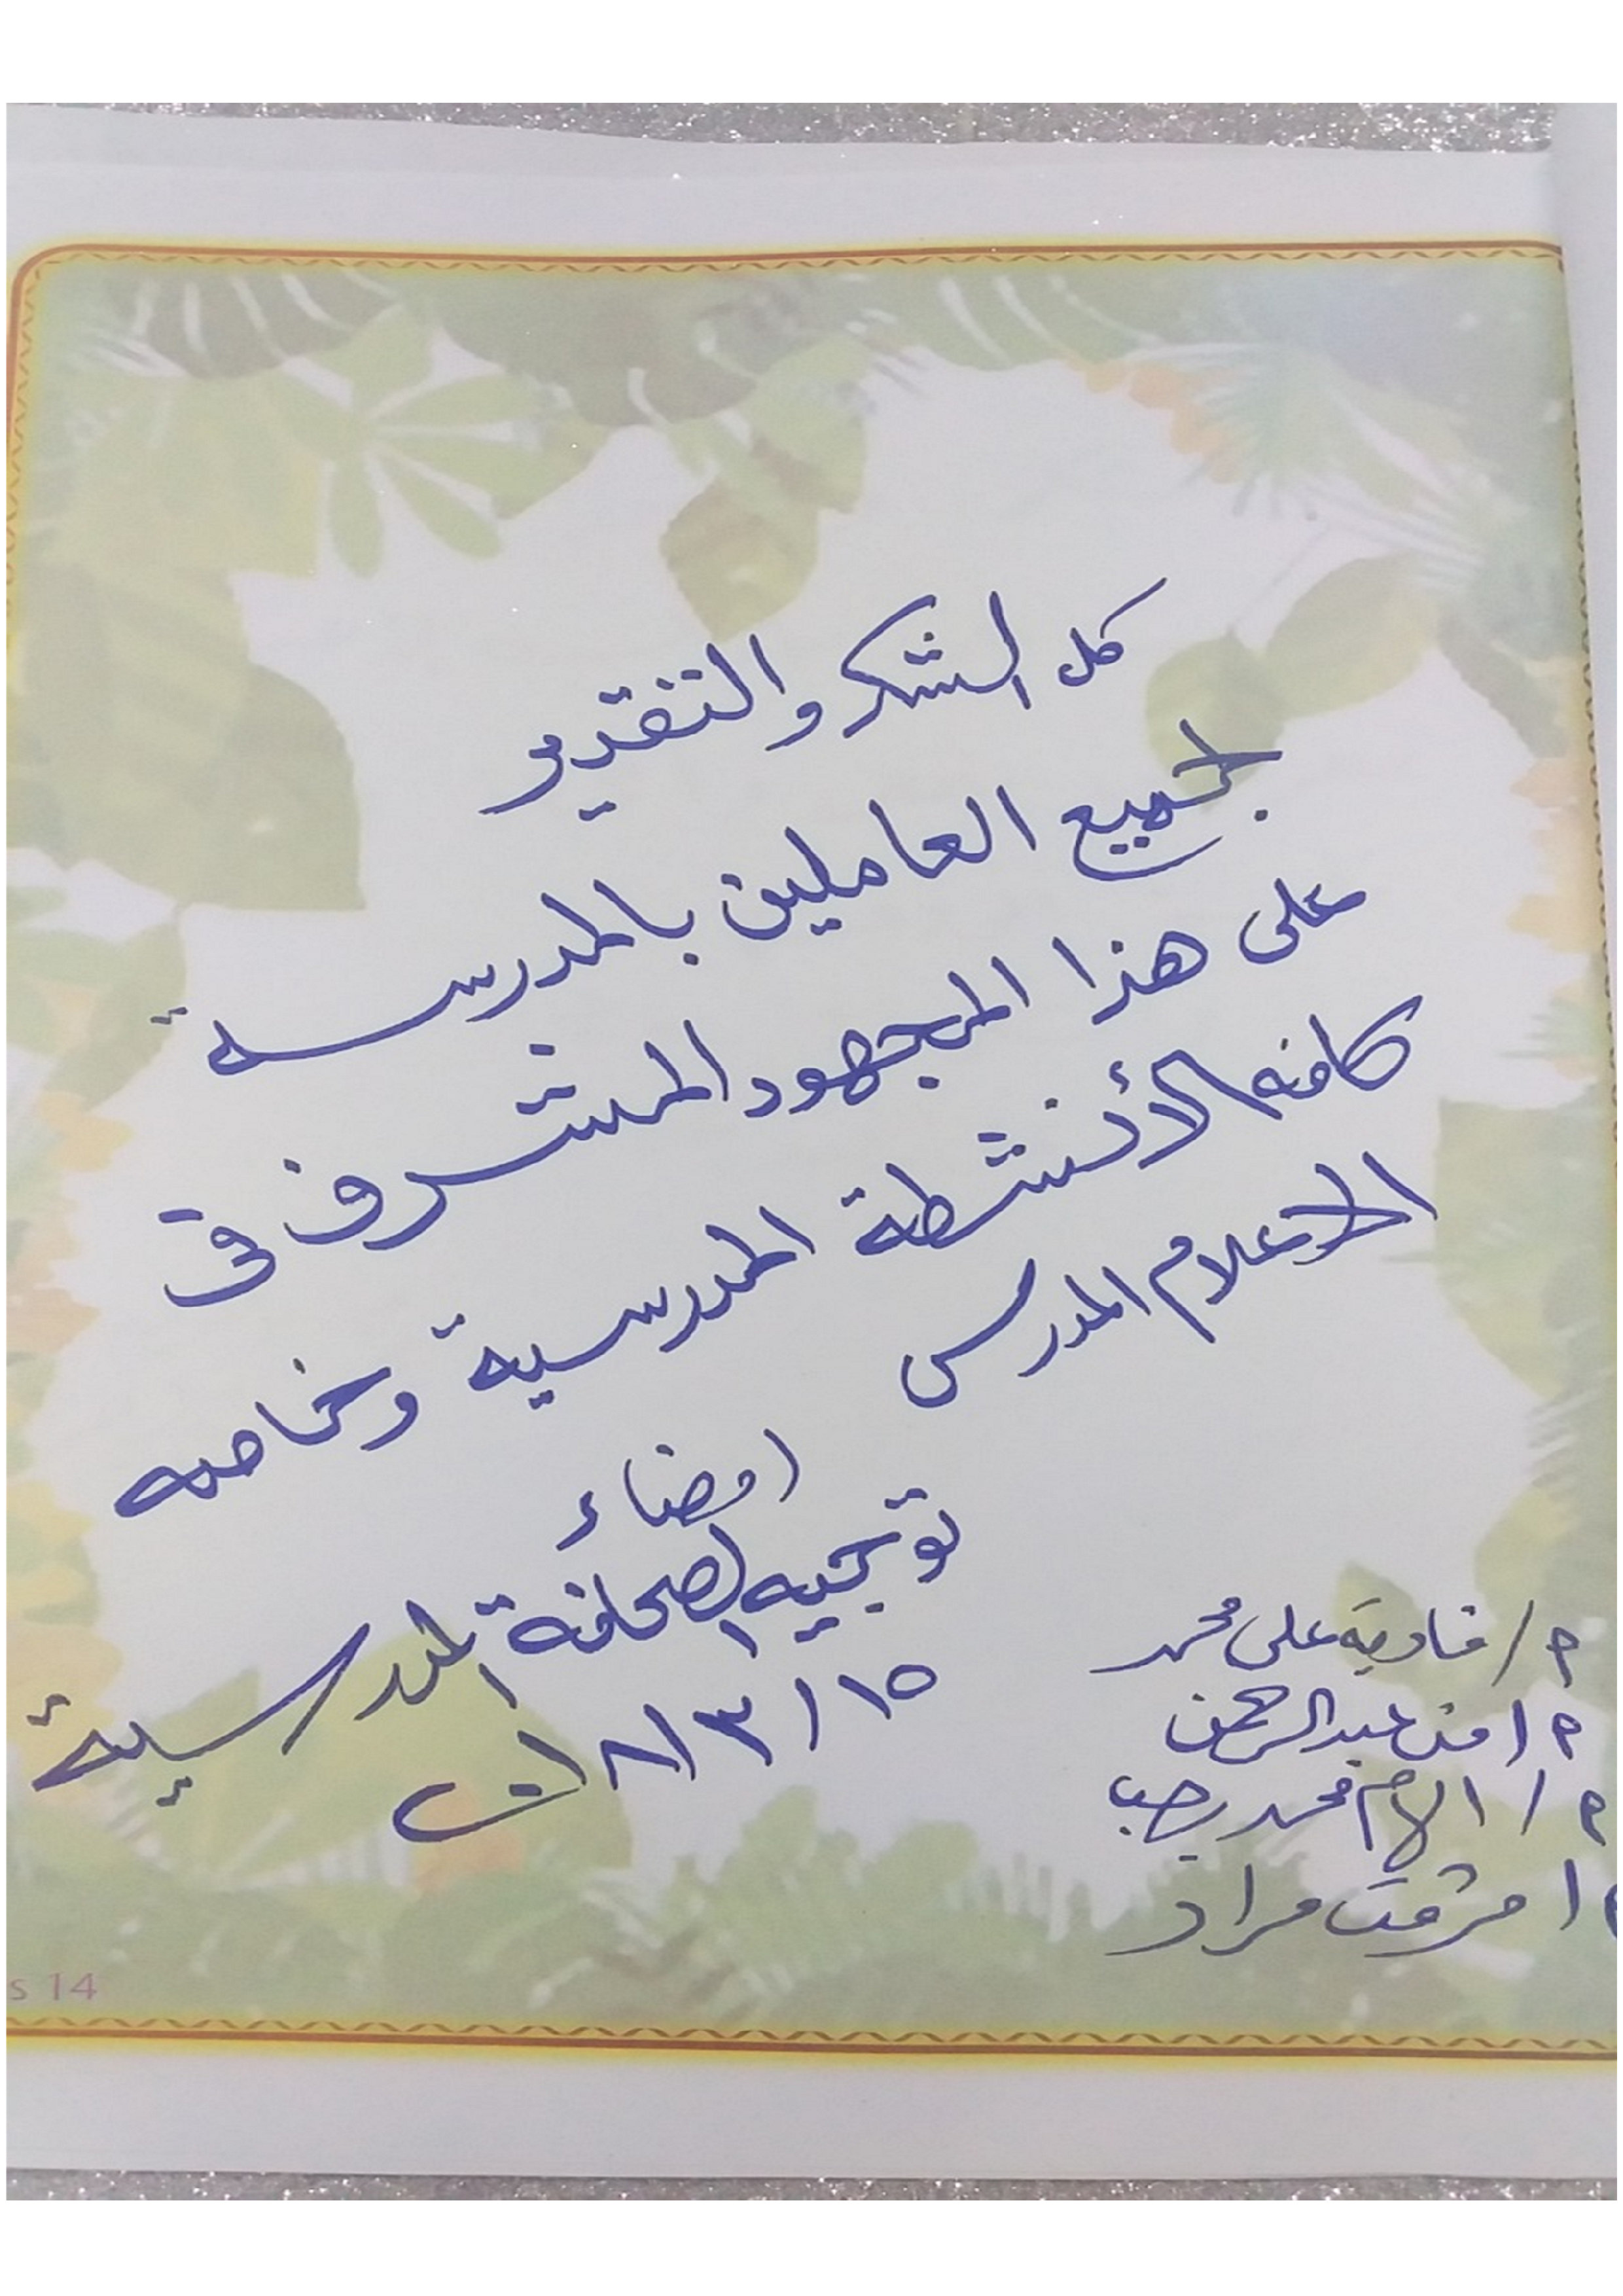 كل الشكر والتقدير
لجميع العاملين بالمدرسة
على هذا المجهود المشرف فى
كافه الأنشطة المدرسية وخاصه
الاعلام المدرسى
امضاء
توجيه الصحافة المدرسية
١٥/٣/
م/ فاوية على محمد
م/ منى عبد الرحمن
م/ محمد رجب
م/ مرفت مراد
s 14